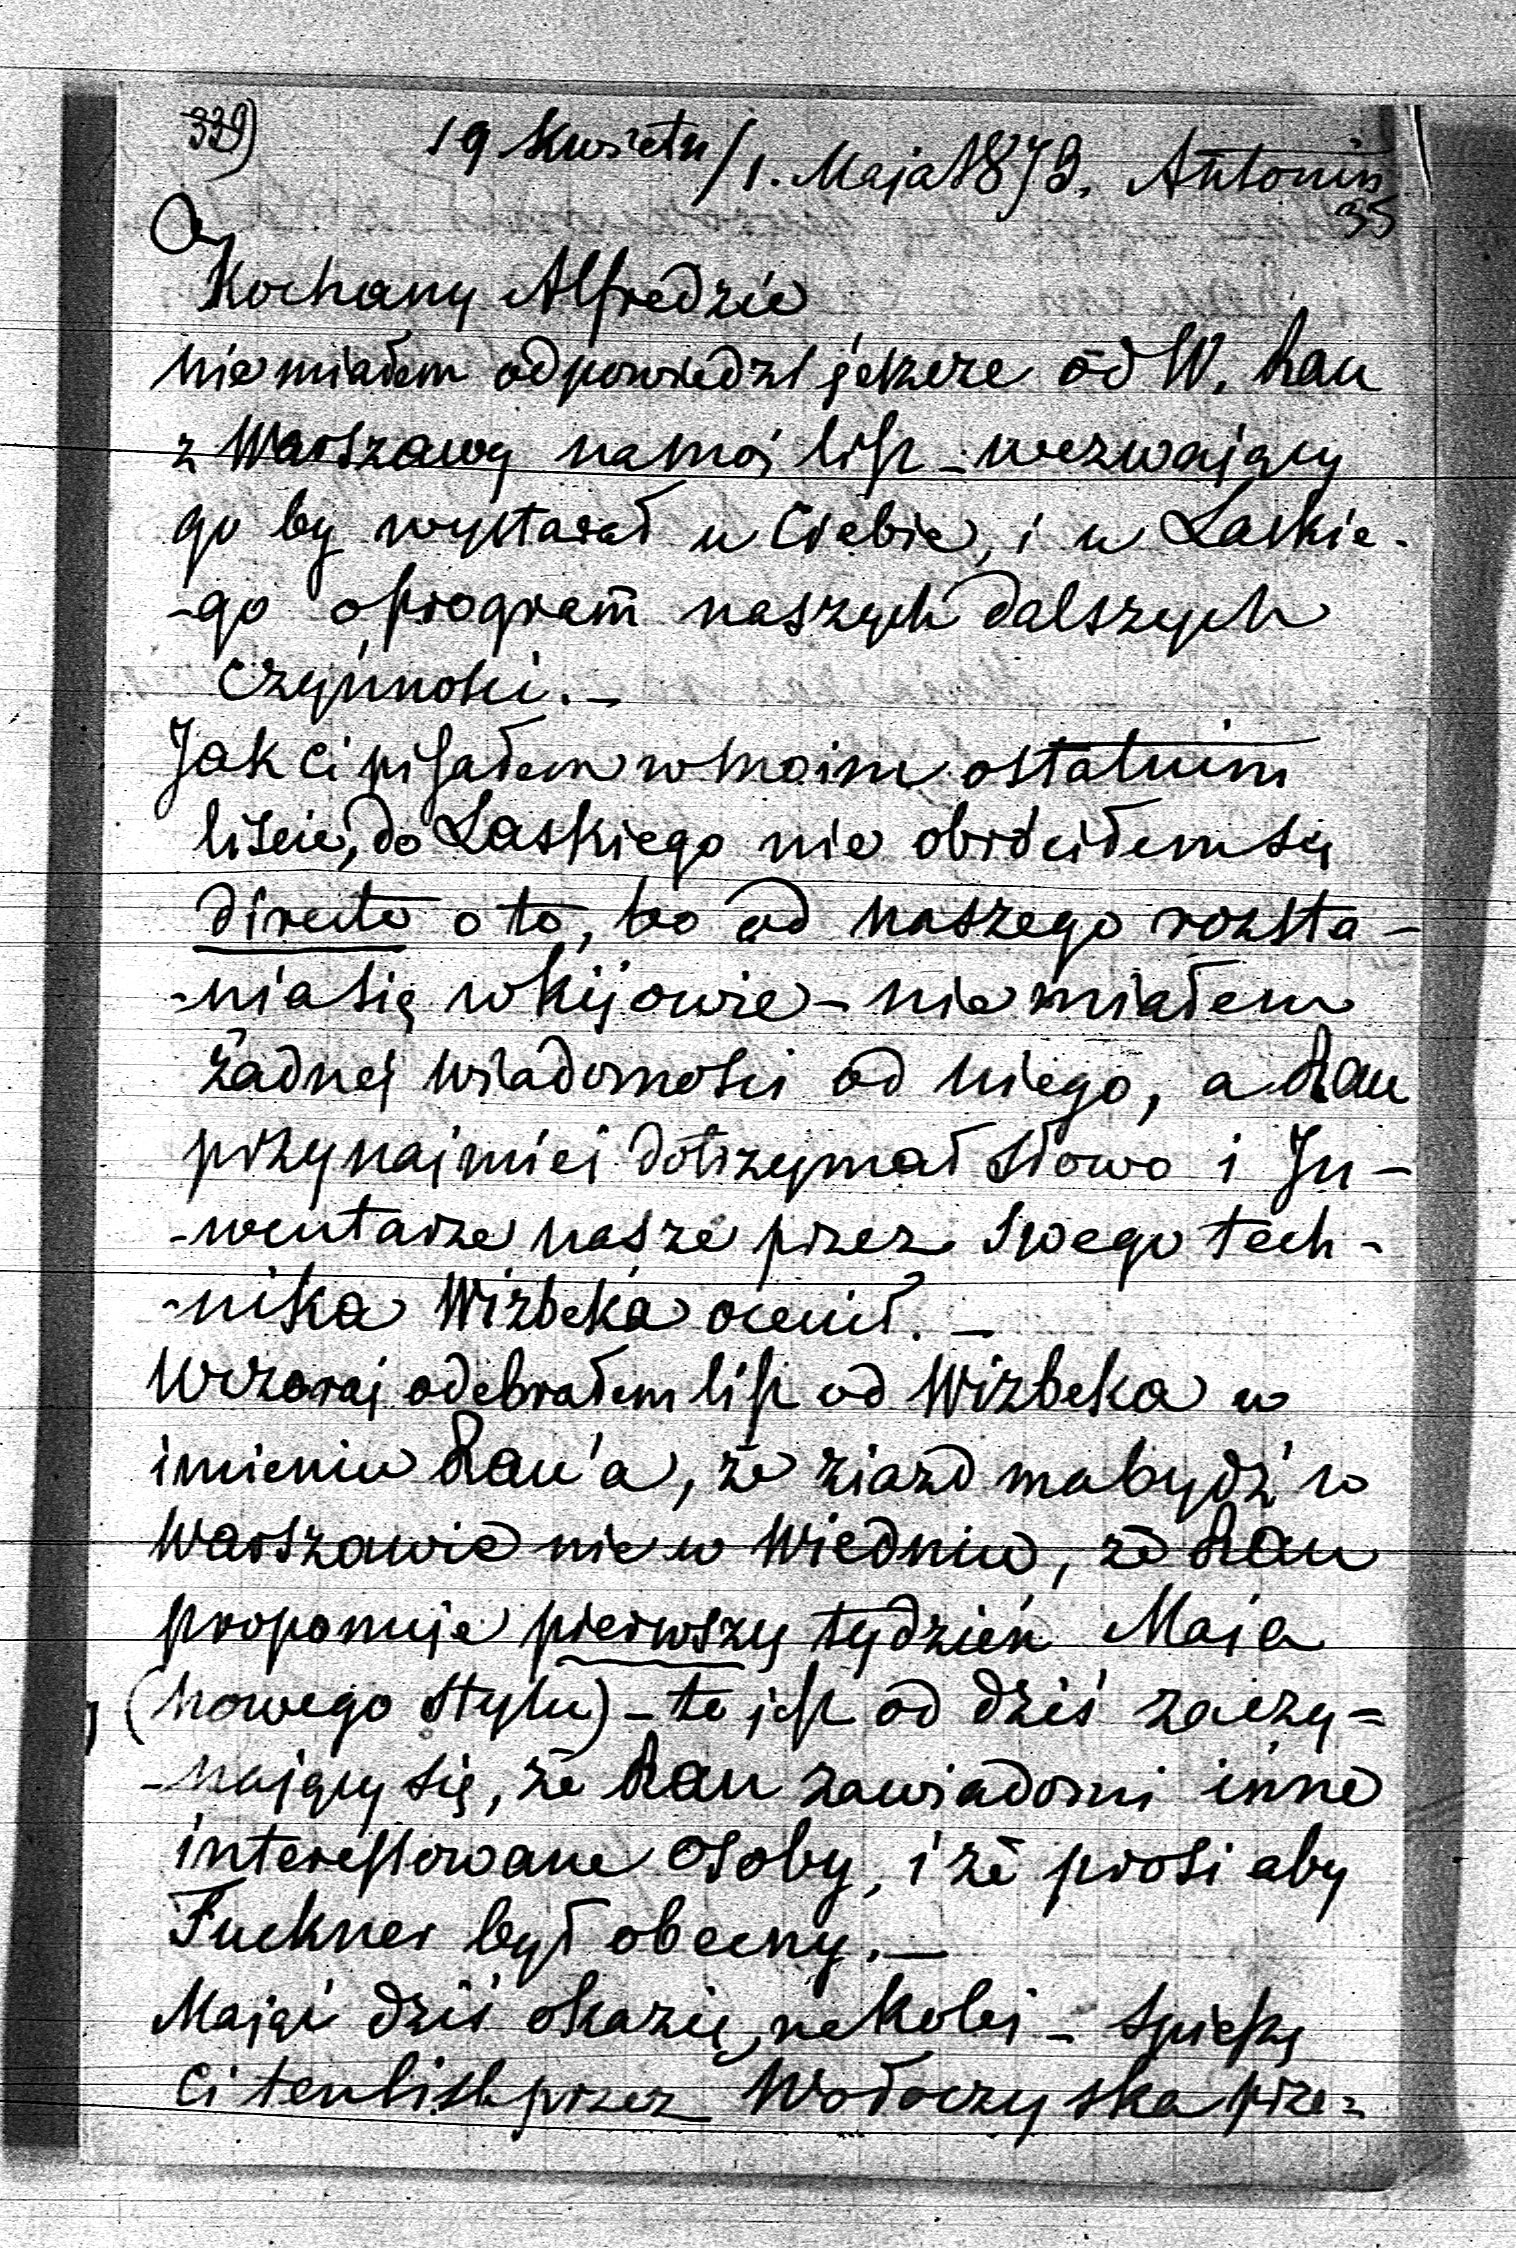 339)
19 Kwietn/1. Maja 1873. Antonin
35
Kochany Alfredzie
nie miałem odpowiedzi jeszcze od W. Rau
z Warszawy na mój list – wezwający
go by wystarał u Ciebie, i u Laskie-
-go o program naszych dalszych
czynności. –
Jak ci pisałem w moim ostatnim
liście, do Laskiego nie obróciłem się
directe o to, bo od naszego rozsta-
-nia się w Kijowie – nie miałem
żadnej wiadomości od niego, a Rau
przynajmiej dotrzymał słowo i In-
-wentarze nasze przez swego tech-
-nika Wizbeka ocenił. –
Wczoraj odebrałem list od Wizbeka w
imieniu Rau'a, że ziazd ma bydź w
Warszawie nie w Wiedniu, że Rau
proponuje pierwszy tydzień Maja
(nowego stylu) – to jest od dziś zaczy=
-nający się, że Rau zawiadomi inne
interessowane osoby, i że prosi aby
Fuckner był obecny. –
Mając dziś okazię, na Kolej – spieszę
Ci ten list przez Wołoczyska prze=